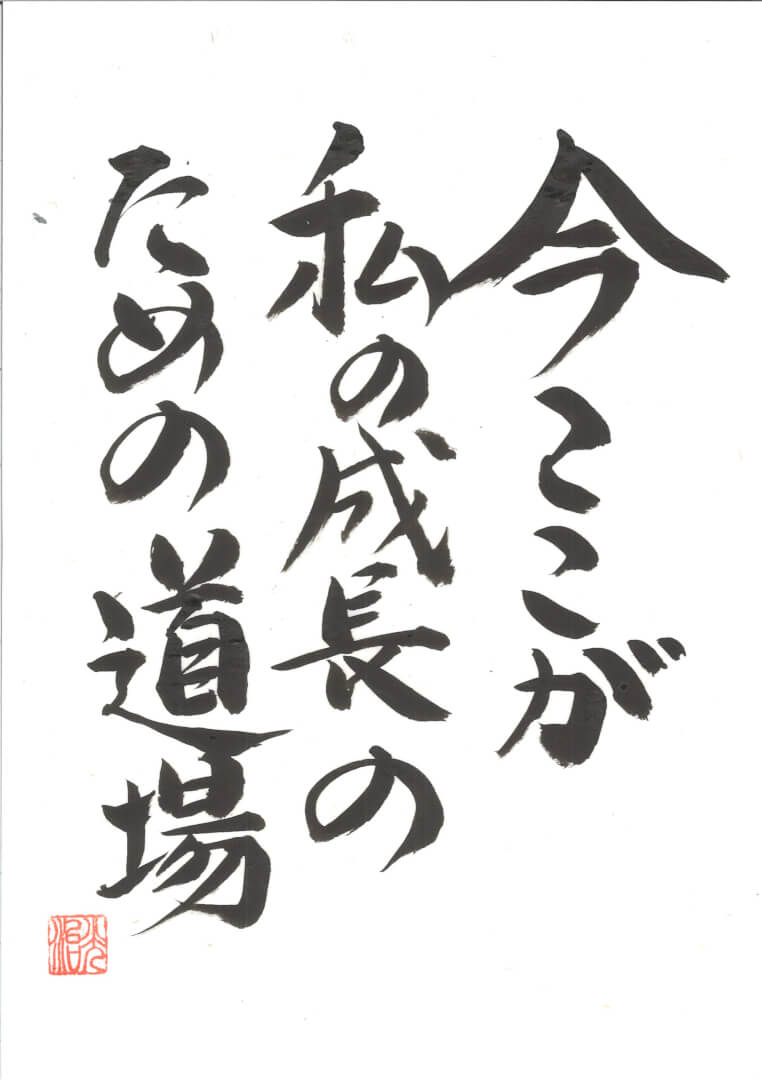 今ここが
私の成長の
ための道場